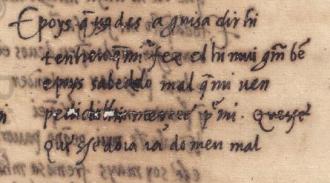 E poys q̃ todes a guisa dir hi
tenheio q̃ mi fez el hi mui grã bẽ
e poys sabedelo mal q̃ mi uen
por mi. Quesse
que sse doia ia do meu mal